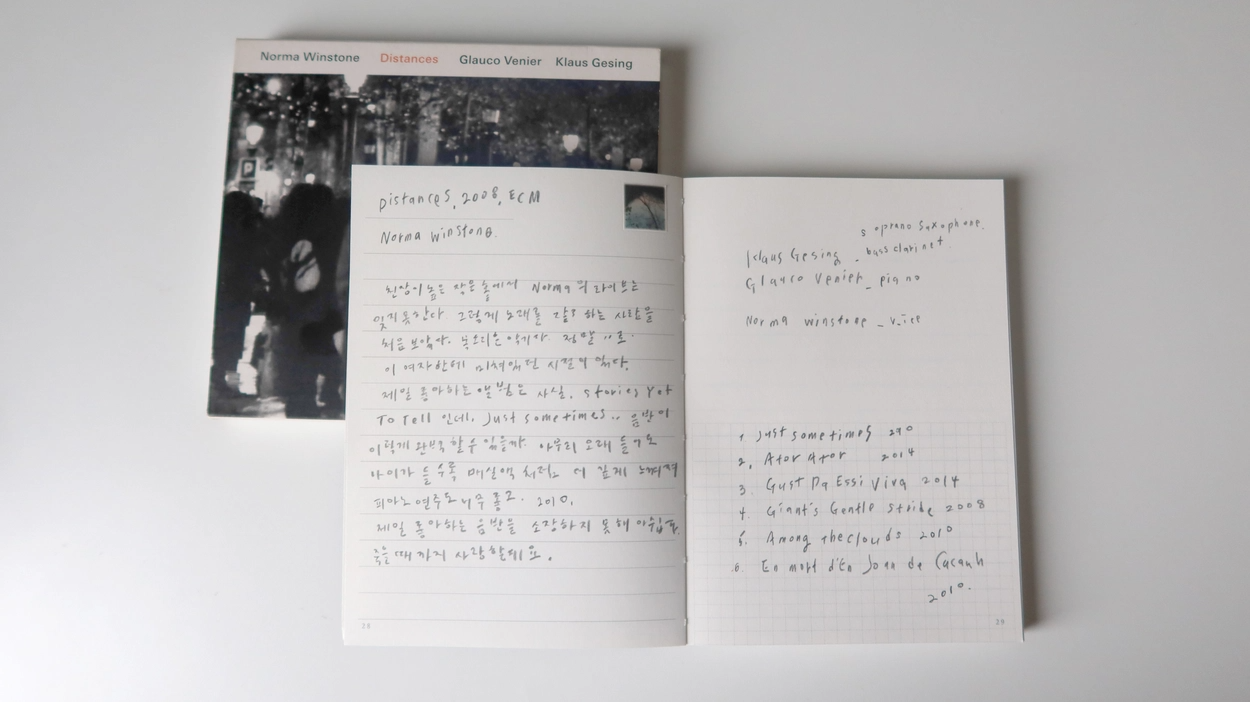 Norma Winstone Distances Glauco Venier Klaus Gesing
P
Distances, 2008, ECM
Norma Winstone.
천장이 높은 장은홀에서 Norma의 라이브는
잊지못한다 그렇게 노래를 잘 하는 사람을
처음 보았다. 목소리은 악기다 정말 으로.
이 여자한테 미쳐있던 시절이 있다.
제일 좋아하는 앨범은 사실, Stories Yet
To Tell 인데, Just sometimes.. 음반이
이렇게 완벽 할수 있을까. 아무리 오래 들어도
나이가 들수록 매실액 처럼 더 깊게 느껴져
피아노 연주도 너무 좋고. 2010.
제일 좋아하는 음반을 소장하지 못해 아쉽군.
죽을때까지 사랑할테요.
28
soprano saxophone.
Klaus Gesing _ bass clarinet
Glauco Venier _ piano
Norma winstone _ voice
1 Just sometimes
2. Ator Ator 2014
3. Gust Da Essi Viva 2014
4. Giant's Gentle stride 2008
5. Among the clouds 2010
6. En mort d'En Joan de Cucanh
2010.
29